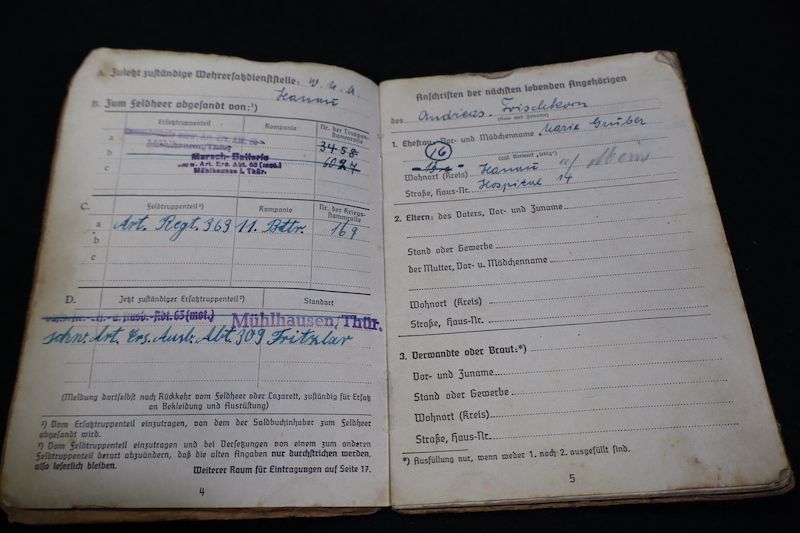 A. Zuletzt zuständige Wehrersatzdienststelle: W. M. A.
Hanau
B. Zum Feldheer abgesandt von:¹)
Ersatztruppenteil Kompanie Nr. der Truppenstammrolle
a
Mühlhausen/Thür. 3458
b Marsch-Batterie
c Art. Ers. Abt. 63 (mot.) 6027
Mühlhausen i. Thür.
C. Feldtruppenteil²) Kompanie Nr. der Kriegsstammrolle
a Art. Regt. 363 11. Battr. 169
b
c
D. Jetzt zuständiger Ersatztruppenteil²) Standort
u. Ausb.-Abt. 65 (mot.) Mühlhausen/Thür.
schw. Art. Ers. Ausb. Abt. 309 Fritzlar
(Meldung dortselbst nach Rückkehr vom Feldheer oder Lazarett, zuständig für Ersatz
an Bekleidung und Ausrüstung)
¹) Vom Ersatztruppenteil einzutragen, von dem der Soldbuchinhaber zum Feldheer
abgesandt wird.
²) Vom Feldtruppenteil einzutragen und bei Versetzungen von einem zum anderen
Feldtruppenteil derart abzuändern, daß die alten Angaben nur durchstrichen werden,
also leserlich bleiben.
Weiterer Raum für Eintragungen auf Seite 17.
4
Anschriften der nächsten lebenden Angehörigen
des Andreas Frischkorn
(Vor- und Zuname)
1. Ehefrau: Vor- und Mädchenname Marie Gruber
(ggf. Vermerk „ledig")
16
Wohnort (Kreis) Hanau a/ Main
Straße, Haus-Nr. Hospital 14
2. Eltern: des Vaters, Vor- und Zuname
Stand oder Gewerbe
der Mutter, Vor- u. Mädchenname
Wohnort (Kreis)
Straße, Haus-Nr.
3. Verwandte oder Braut:*)
Vor- und Zuname
Stand oder Gewerbe
Wohnort (Kreis)
Straße, Haus-Nr.
*) Ausfüllung nur, wenn weder 1. noch 2. ausgefüllt sind.
5